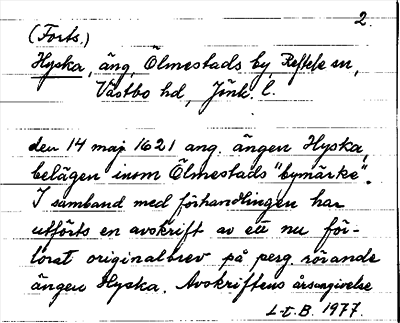 2.
(Forts.)
Hyska, äng, Ölmestads by, Reftele sn,
Västbo hd, Jönk. l.
den 14 maj 1621 ang. ängen Hyska,
belägen inom Ölmestads "bymärke".
I samband med förhandlingen har
utförts en avskrift av ett nu för-
lorat originalbrev på perg. rörande
ängen Hyska. Avskriftens årsangivelse
L-E. B. 1977.